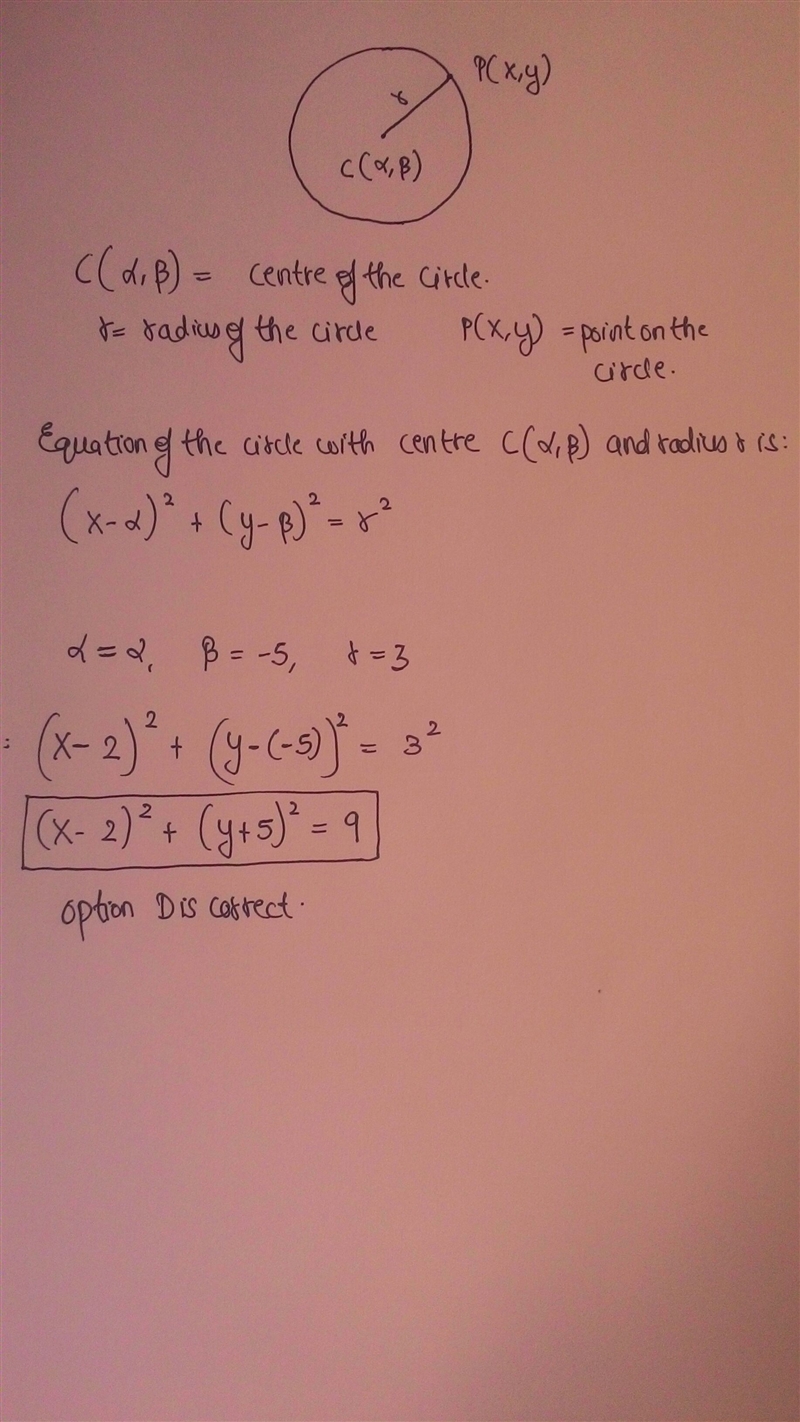 P(x,y)
r
C(α,β)
C(α,β) = centre of the circle.
r = radius of the circle P(x,y) = point on the
circle.
Equation of the circle with centre C(α,β) and radius r is:
(x-α)² + (y-β)² = r²
α = 2, β = -5, r = 3
: (x- 2)² + (y-(-5))² = 3²
(x- 2)² + (y+5)² = 9
option D is correct.